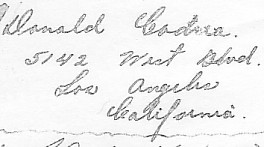 Donald
5142 West Blvd.
Los Angeles
California.